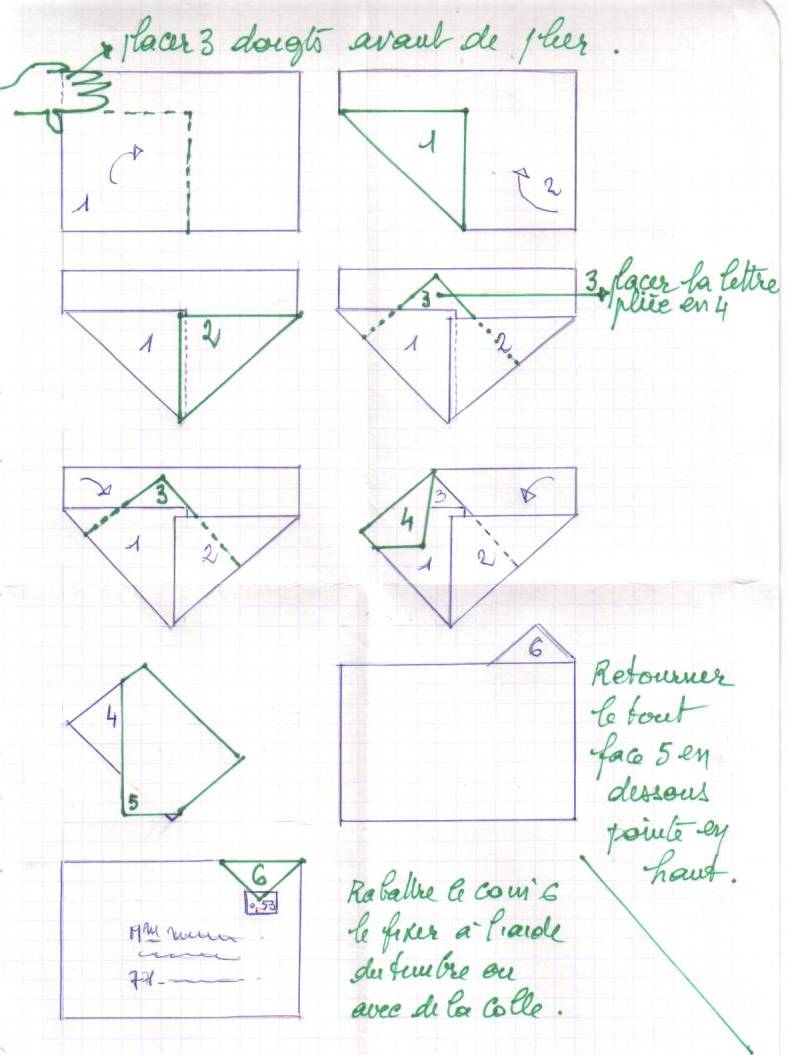 placer 3 doigts avant de plier .
1
1
2
1
2
3
1
2
3. placer la lettre
pliée en 4
3
1
2
3
4
1
2
4
5
6
Retourner
le tout
face 5 en
dessous
pointe en
haut.
6
0,53
Mme
77.
Rabattre le coin 6
le fixer à l'aide
du timbre ou
avec de la colle .